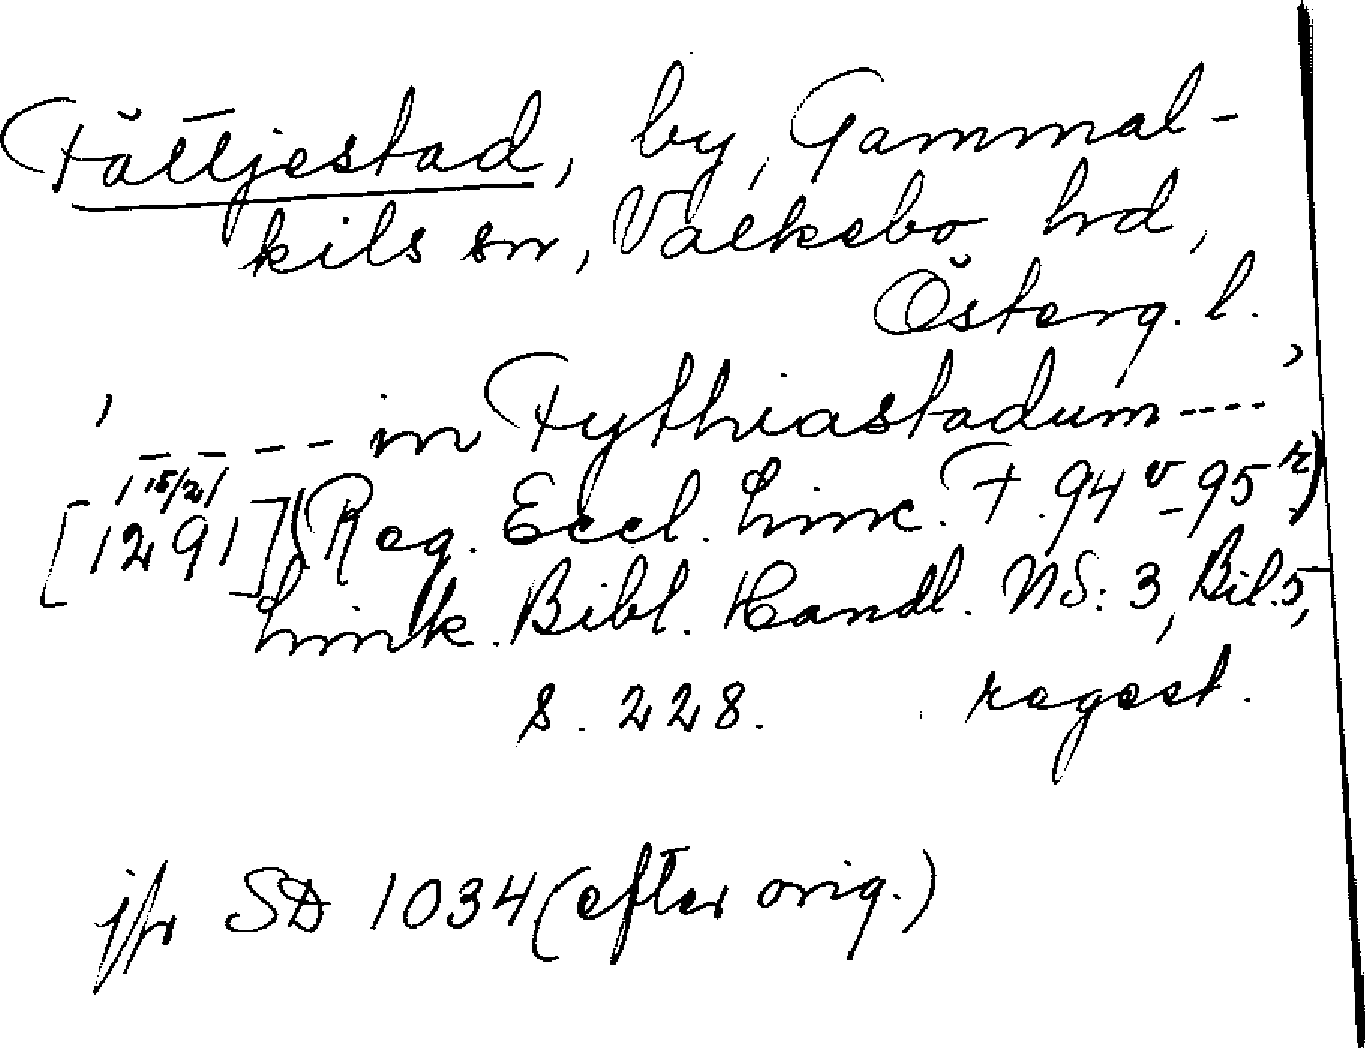 Fättjestad, by, Gammal-
kils sn, Valkebo hd,
Österg. l.
, ---- in Fythiastadum ----,
15/2
[1291] (Reg. Eccl. Linc. F. 94v-95r)
Link. Bibl. Handl. NS: 3, Bil. 5,
s. 228. regest.
jfr SD 1034 (efter orig.)